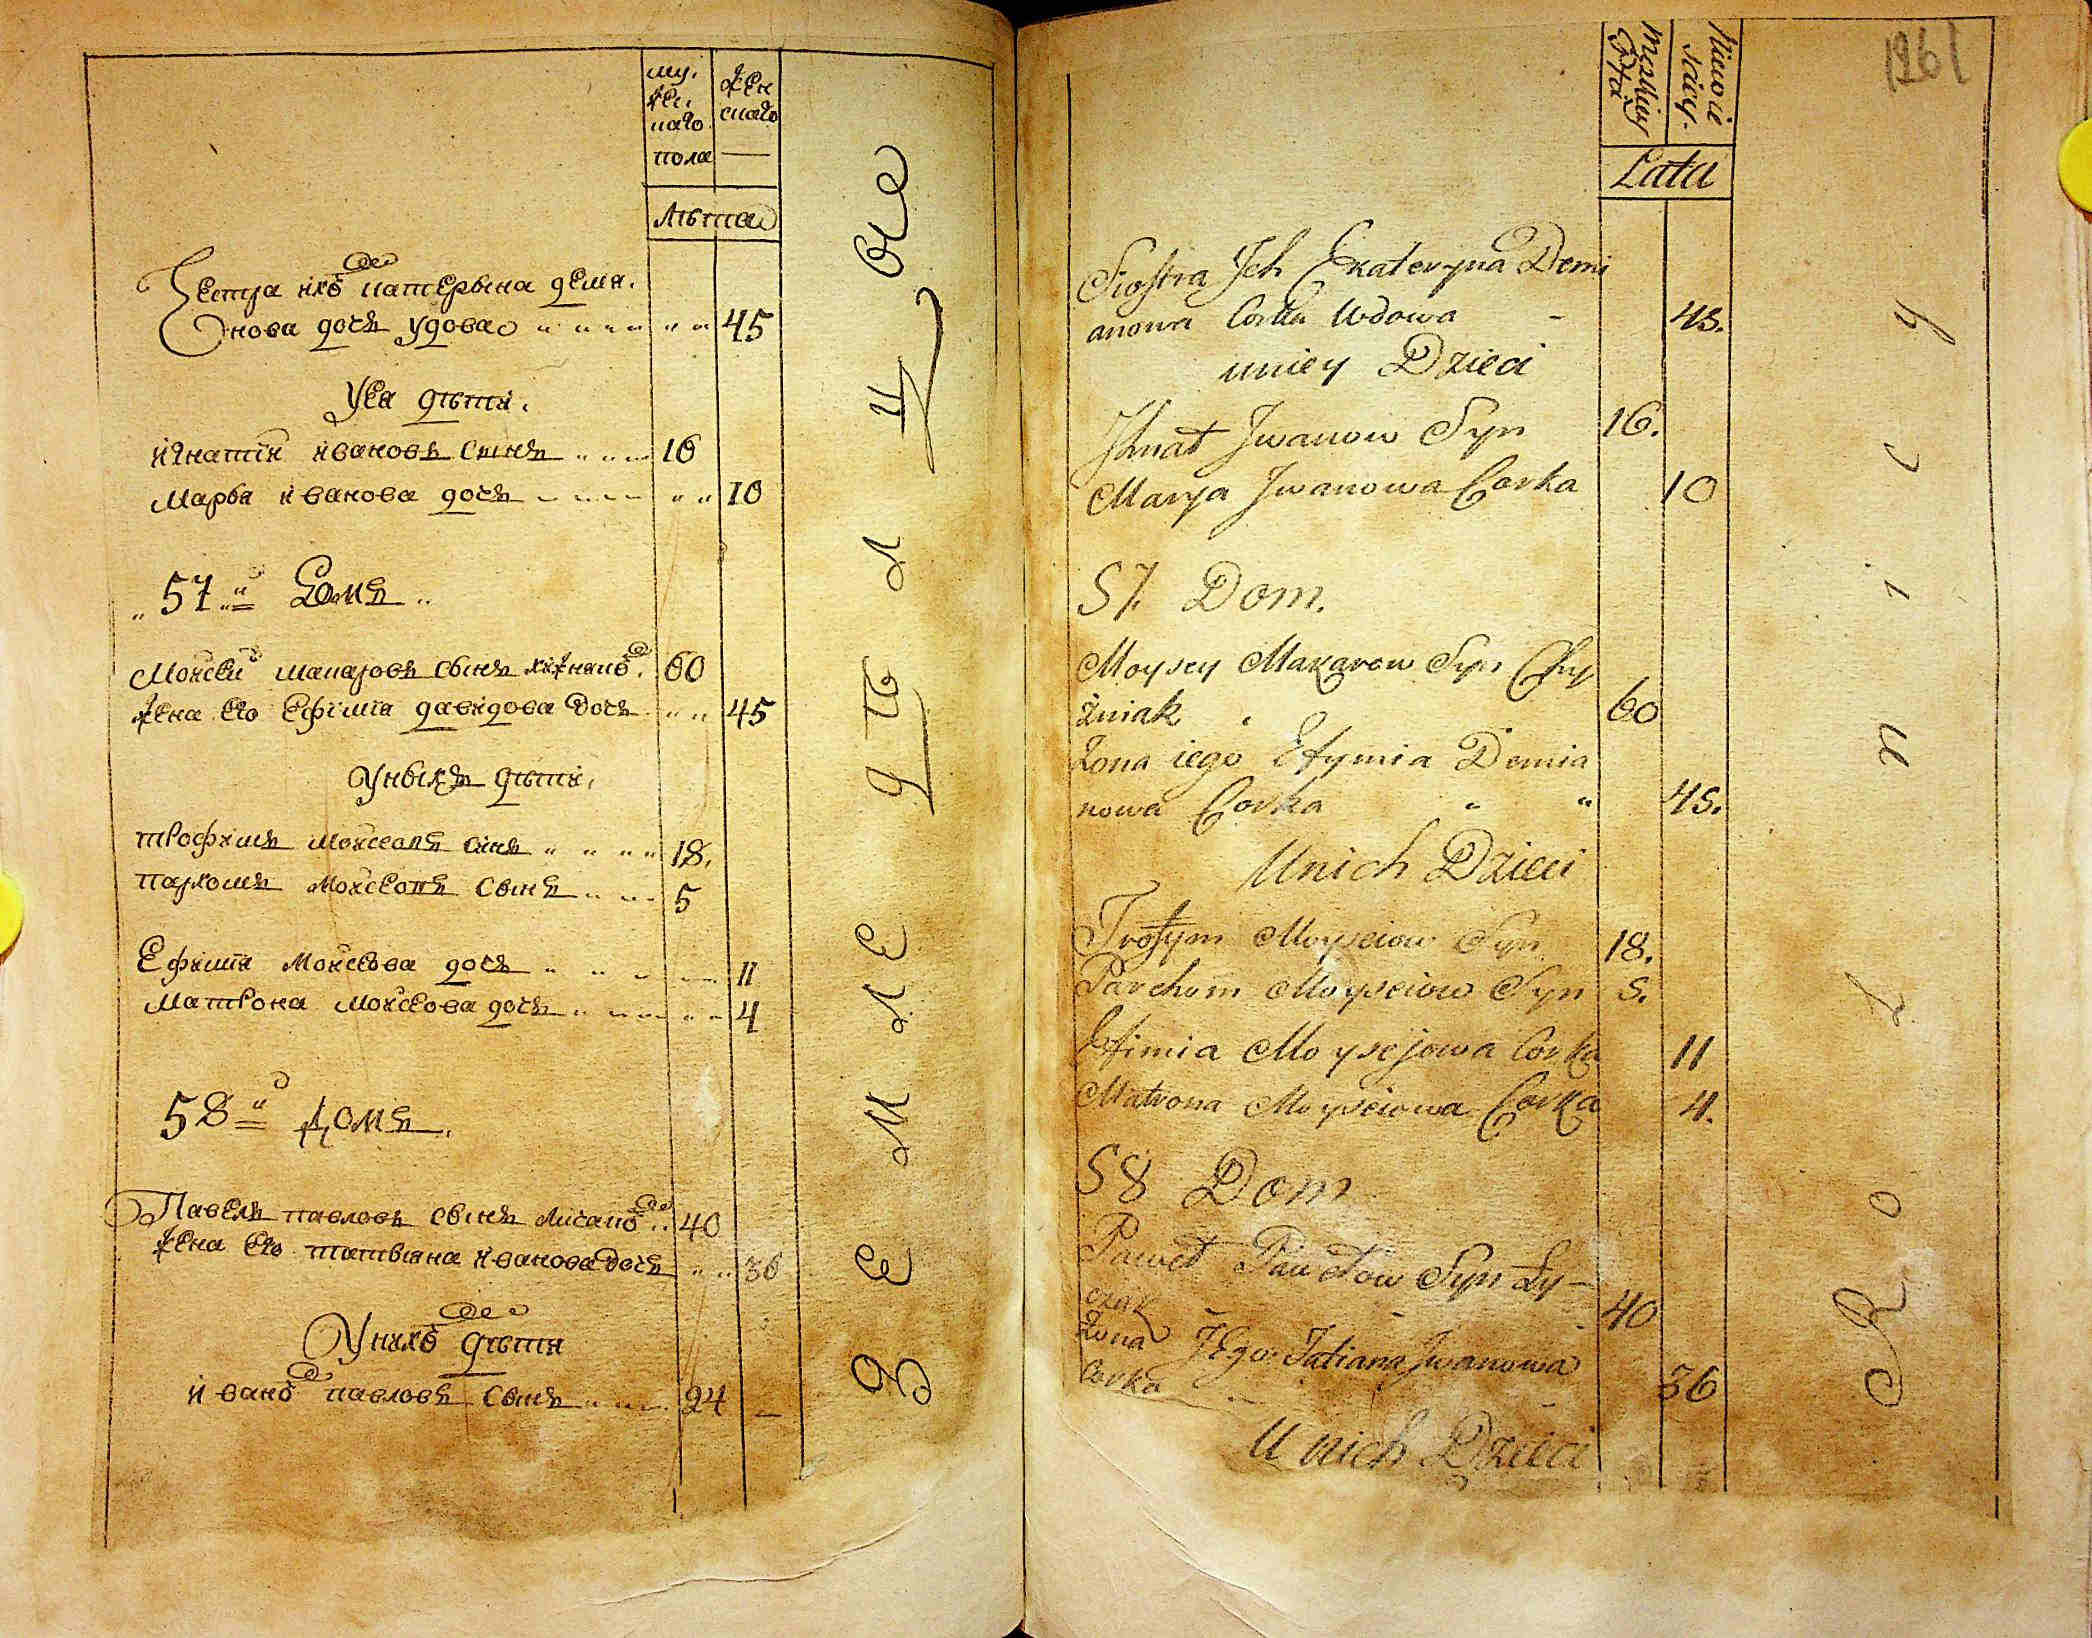 му,
жес,
каго
пола
жен
скаго
Лѣта
Сестра ихъ катерына деми,
нова дочь удова 45
Уея дѣти,
игнатіи ивановъ сынъ 16
Марва иванова дочь 10
57й Домъ
Моисеи макаровъ сынъ хижнякъ, 60
жена его Ефіміа давидова дочь 45
Унихъ дѣти,
трофимъ моисеовъ синъ 18,
пархомъ моисеовъ сынъ 5
Ефиміа Моисеова дочь 11
Матрона моисеова дочь 4
58й Домъ,
Павелъ павловъ сынъ лисакъ 40
жена его татьяна иванова дочь 36
Унихъ дѣти
иванъ павловъ сынъ 24
ЗЕМЛЕДѢЛЦЫ
1261
Męzkiey
Płci
Niewie
sciey.
Lata
Siostra Jch Ekateryna Demi
anowa Corka Wdowa 45.
uniey Dzieci
Jhnat Jwanow Syn 16.
Marya Jwanowa Corka 10
57. Dom.
Moysey Makarow Syn Chy
żniak 60
Żona iego Efymia Demia
nowa Corka 45.
Unich Dzieci
Trofym Moyseiow Syn 18.
Parchom Moyseiow Syn 5.
Efimia Moysejowa Corka 11
Matrona Moyseiowa Corka 4.
58 Dom
Paweł Pawełow Syn Ly-
czak 40
Żona Jego Tatiana Jwanowa
Corka 36
Unich Dzieci
Rolnicy